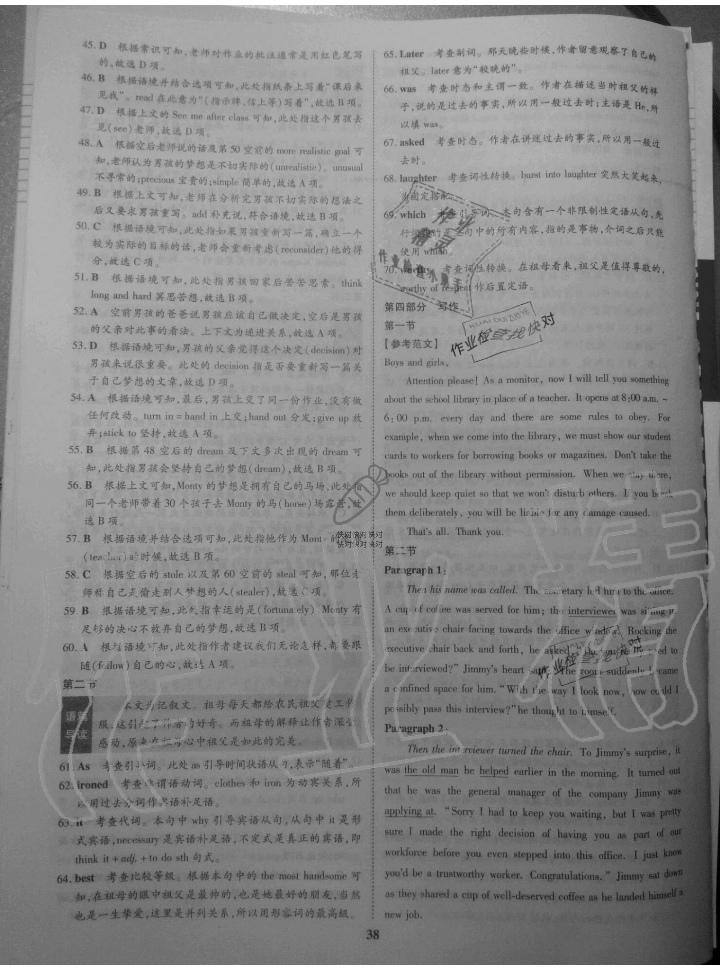 45. D 根据常识可知,老师对作业的批注通常是用红色笔写
的,故选 D 项。
46. B 根据语境并结合选项可知,此处指纸条上写着“课后来
见我”。read 在此意为“(指示牌、信上等)写着”,故选 B 项。
47. D 根据上文的 See me after class 可知,此处指这个男孩去
见(see)老师,故选 D 项。
48. A 根据空后老师说的话及第 50 空前的 more realistic goal 可
知,老师认为男孩的梦想是不切实际的(unrealistic)。unusual
不寻常的;precious 宝贵的;simple 简单的,故选 A 项。
49. B 根据上文可知,老师在分析完男孩不切实际的想法之
后又要求男孩重写。add 补充说,符合语境,故选 B 项。
50. C 根据语境可知,此处指如果男孩重新写一篇,确立一个
较为实际的目标的话,老师会重新考虑(reconsider)他的得
分,故选 C 项。
51. B 根据语境可知,此处指男孩回家后苦苦思索。think
long and hard 冥思苦想,故选 B 项。
52. A 空前男孩的爸爸说男孩应该自己做决定,空后是男孩
的父亲对此事的看法。上下文为递进关系,故选 A 项。
53. D 根据语境可知,男孩的父亲觉得这个决定(decision)对
男孩来说很重要。此处的 decision 指是否要重新写一篇关
于自己梦想的文章,故选 D 项。
54. A 根据语境可知,最后,男孩上交了同一份作业,没有做
任何改动。turn in = hand in 上交;hand out 分发;give up 放
弃;stick to 坚持,故选 A 项。
55. B 根据第 48 空后的 dream 及下文多次出现的 dream 可
知,此处指男孩会坚持自己的梦想(dream),故选 B 项。
56. B 根据上文可知,Monty 的梦想是拥有自己的马场,此处指
同一个老师带着 30 个孩子去 Monty 的马(horse)场露营,故
选 B 项。
57. B 根据语境并结合选项可知,此处指他作为 Monty 的
(teacher)的时候,故选 B 项。
58. C 根据空后的 stole 以及第 60 空前的 steal 可知,那位老
师称自己是偷走别人梦想的人(stealer),故选 C 项。
59. B 根据语境可知,此处指幸运的是(fortunately) Monty 有
足够的决心不放弃自己的梦想,故选 B 项。
60. A 根据语境可知,此处指作者建议我们无论怎样,都要跟
随(follow)自己的心,故选 A 项。
第二节
语篇导读
本文为记叙文。祖母每天都给农民祖父熨工作
服,这引起了作者的好奇。而祖母的解释让作者深受
感动,原来在祖母心中祖父是如此的完美。
61. As 考查引导词。此处 as 引导时间状语从句,表示“随着”。
62. ironed 考查非谓语动词。clothes 和 iron 为动宾关系,所
以用过去分词作宾语补足语。
63. it 考查代词。本句中 why 引导宾语从句,从句中 it 是形
式宾语,necessary 是宾语补足语,不定式是真正的宾语,即
think it + adj. + to do sth 句式。
64. best 考查比较等级。根据本句中的 the most handsome 可
知,在祖母的眼中祖父是最帅的,也是她最好的朋友,当然
也是一生挚爱,这里是并列关系,所以用形容词的最高级。
65. Later 考查副词。那天晚些时候,作者留意观察了自己的
祖父。later 意为“较晚的”。
66. was 考查时态和主谓一致。作者在描述当时祖父的样
子,说的是过去的事实,所以用一般过去时;主语是 He,所
以填 was。
67. asked 考查时态。作者在讲述过去的事实,所以用一般过
去时。
68. laughter 考查词性转换。burst into laughter 突然大笑起来,
为固定搭配。
69. which 考查引导词。本句含有一个非限制性定语从句,先
行词是主句中的所有内容,指的是事物,介词之后只能
使用 which。
70. worthy 考查词性转换。在祖母看来,祖父是值得尊敬的,
worthy of respect 作后置定语。
第四部分 写作
第一节
【参考范文】
Boys and girls,
Attention please! As a monitor, now I will tell you something
about the school library in place of a teacher. It opens at 8:00 a.m. ~
6:00 p.m. every day and there are some rules to obey. For
example, when we come into the library, we must show our student
cards to workers for borrowing books or magazines. Don't take the
books out of the library without permission. When we stay there,
we should keep quiet so that we won't disturb others. If you break
them deliberately, you will be liable for any damage caused.
That's all. Thank you.
第二节
Paragraph 1:
Then his name was called. The secretary led him to the office.
A cup of coffee was served for him; the interviewer was sitting in
an executive chair facing towards the office window. Rocking the
executive chair back and forth, he asked, to
be interviewed?" Jimmy's heart The room suddenly became
a confined space for him. "With the way I look now, how could I
possibly pass this interview?" he thought to himself.
Paragraph 2:
Then the interviewer turned the chair. To Jimmy's surprise, it
was the old man he helped earlier in the morning. It turned out
that he was the general manager of the company Jimmy was
applying at. "Sorry I had to keep you waiting, but I was pretty
sure I made the right decision of having you as part of our
workforce before you even stepped into this office. I just know
you'd be a trustworthy worker. Congratulations." Jimmy sat down
as they shared a cup of well-deserved coffee as he landed himself a
new job.
38